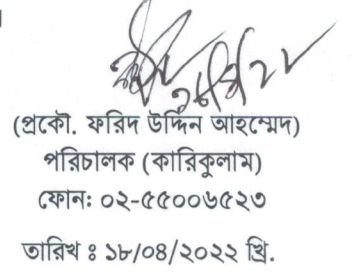 (প্রকৌ. ফরিদ উদ্দিন আহম্মেদ)
পরিচালক (কারিকুলাম)
ফোন: ০২-৫৫০০৬৫২৩
তারিখ ঃ ১৮/০৪/২০২২ খ্রি.